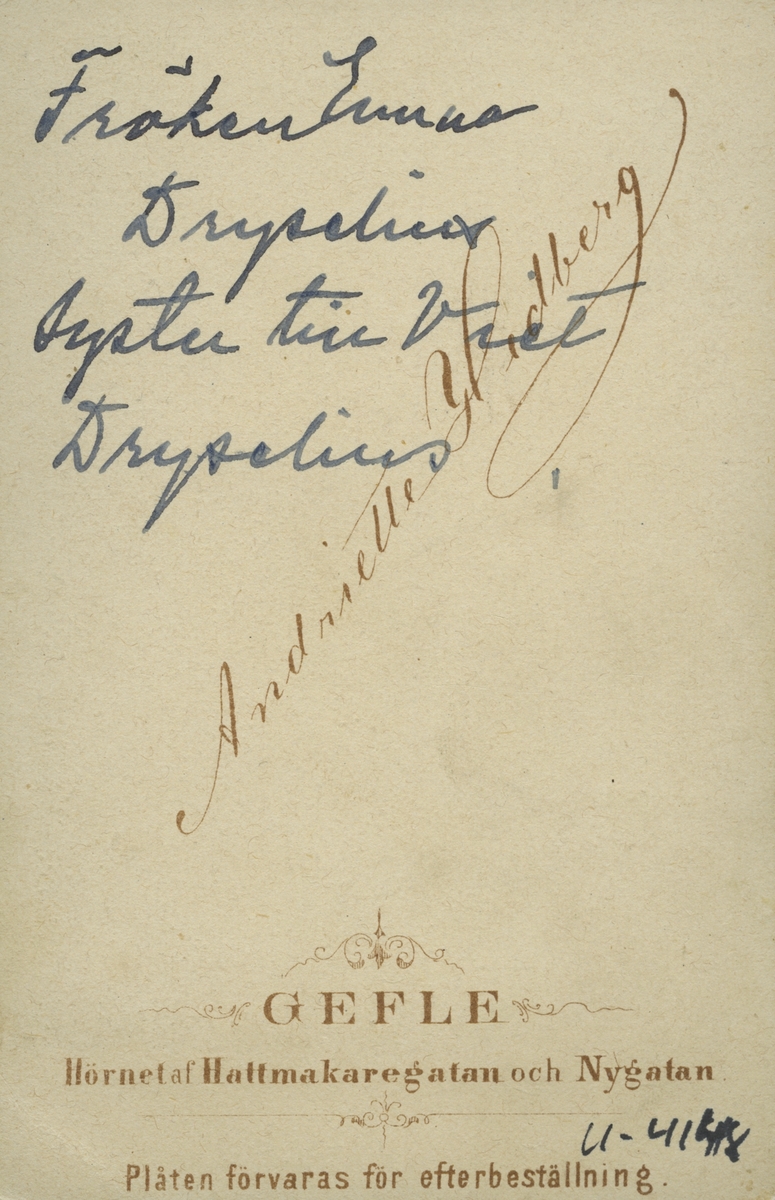 Fröken Emma
Dryselius
syster till
Dryselius
Andriette Widberg
GEFLE
Hörnet af Hattmakaregatan och Nygatan
Plåten förvaras för efterbeställning.